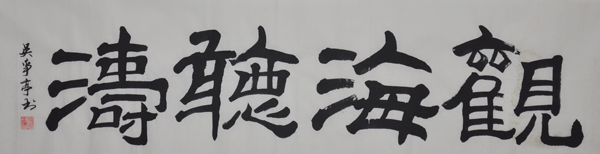 觀海聽濤
吳爭亭书